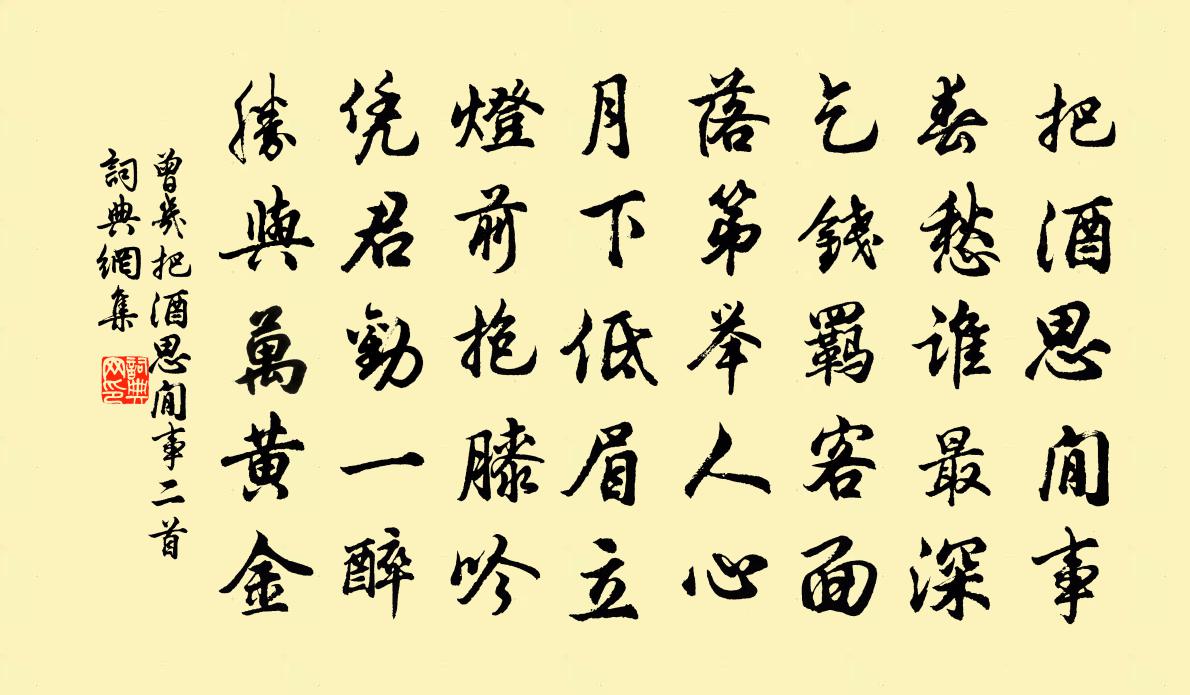 把酒思閒事
春愁誰最深
乞錢羇客面
落第举人心
月下低眉立
燈前抱膝吟
凭君勸一醉
勝與萬黄金
曾幾把酒思閒事二首
詞典網集
詞典網印